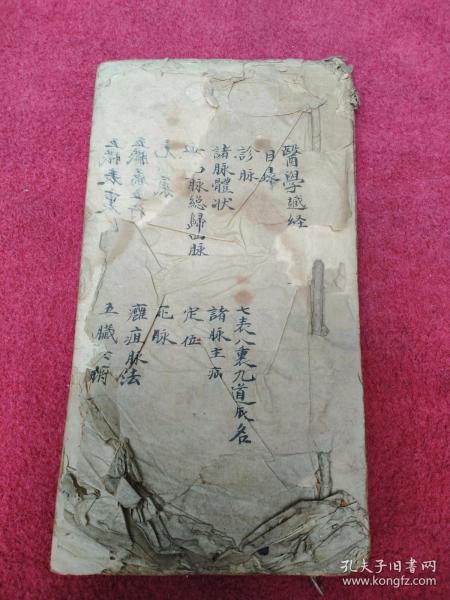 醫學𨒪经
目录
診脉
諸脉體狀
脉總歸四脉
五臟
五臟表裏
七表八裏九道脉名
諸脉主病
定位
死脉
癰疽脉法
五臟六腑
孔夫子旧书网
www.kongfz.com